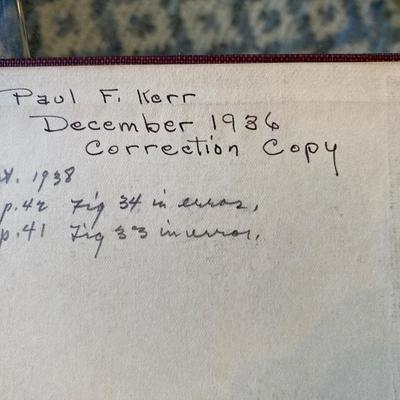 Paul F. Kerr
December 1936
Correction Copy
1938
p.42 Fig 34 in error,
p.41 Fig 33 in error,